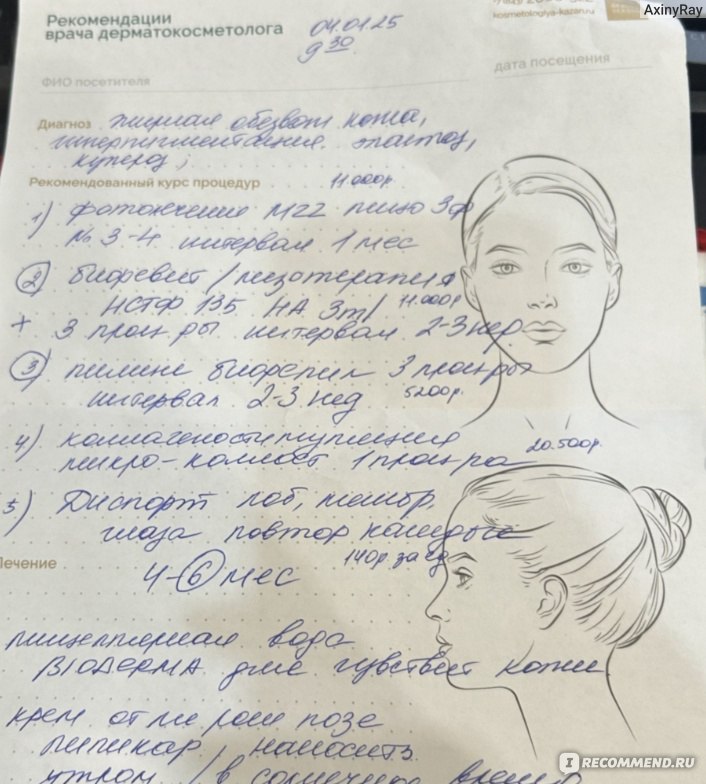 AxinyRay
kosmetologiya-kazan.ru
Рекомендации
врача дерматокосметолога
04.01.25
9 30
ФИО посетителя
дата посещения
Диагноз жирная обезвож кожа,
гиперпигментация эластоз,
купероз,
Рекомендованный курс процедур 11.000р.
1) фотолечение М22 лицо 3ф
№ 3-4 интервал 1 мес
2) биоревит/мезотерапия
НСТФ 135 НА 3ml 11.000р
+ 3 проц-ры интервал 2-3 нед.
3) пилинг биорепил 3 проц-ры
интервал 2-3 нед 5200р.
4) коллагеностимуляция
микро-коллост 1 проц-ра 20.500р.
5) Диспорт лоб, межбр,
глаза повтор каждые
Лечение
4-6 мес 140р. за ед
мицеллярная вода
BIODERMA для чувствит кожи
крем от ля рош позе
липикар / наносить
утром / в солнечное время
IRECOMMEND.RU